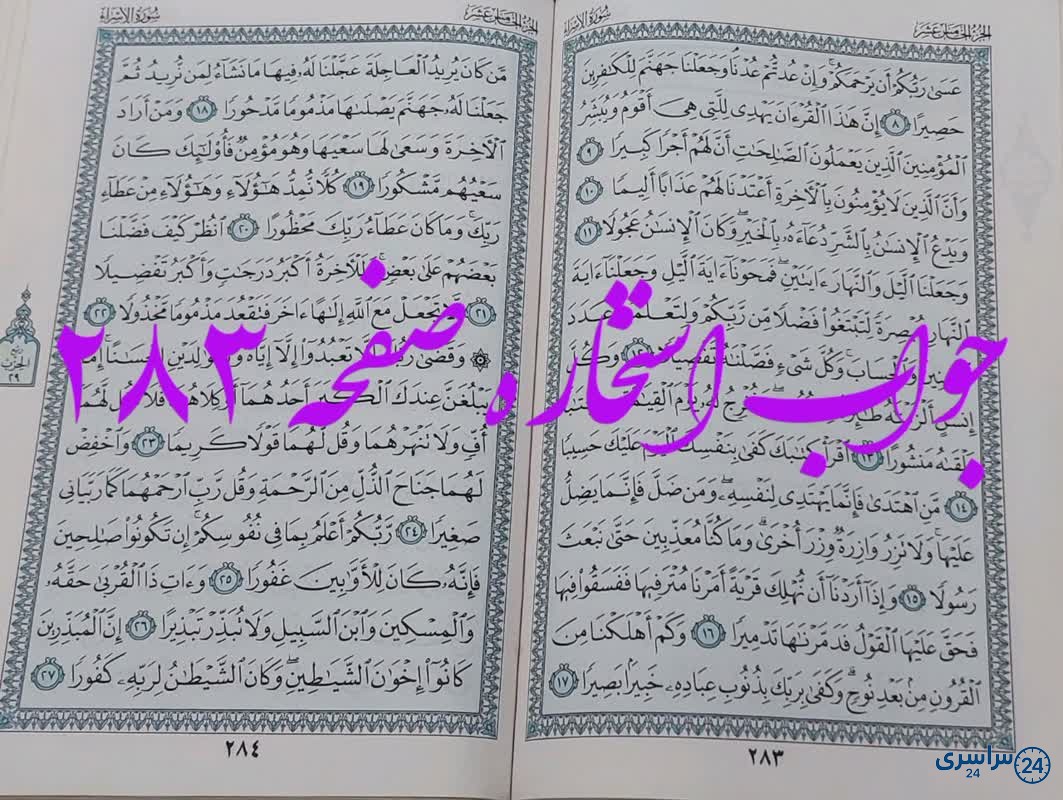 الجزء الخامس عشر
سورة الإسراء
عَسَىٰ رَبُّكُمْ أَن يَرْحَمَكُمْ ۚ وَإِنْ عُدتُّمْ عُدْنَا ۘ وَجَعَلْنَا جَهَنَّمَ لِلْكَٰفِرِينَ
حَصِيرًا ٨ إِنَّ هَٰذَا ٱلْقُرْءَانَ يَهْدِى لِلَّتِى هِىَ أَقْوَمُ وَيُبَشِّرُ
ٱلْمُؤْمِنِينَ ٱلَّذِينَ يَعْمَلُونَ ٱلصَّٰلِحَٰتِ أَنَّ لَهُمْ أَجْرًا كَبِيرًا ٩
وَأَنَّ ٱلَّذِينَ لَا يُؤْمِنُونَ بِٱلْءَاخِرَةِ أَعْتَدْنَا لَهُمْ عَذَابًا أَلِيمًا ١٠
وَيَدْعُ ٱلْإِنسَٰنُ بِٱلشَّرِّ دُعَآءَهُۥ بِٱلْخَيْرِ ۖ وَكَانَ ٱلْإِنسَٰنُ عَجُولًا ١١
وَجَعَلْنَا ٱلَّيْلَ وَٱلنَّهَارَ ءَايَتَيْنِ ۖ فَمَحَوْنَآ ءَايَةَ ٱلَّيْلِ وَجَعَلْنَآ ءَايَةَ
ٱلنَّهَارِ مُبْصِرَةً لِّتَبْتَغُوا۟ فَضْلًا مِّن رَّبِّكُمْ وَلِتَعْلَمُوا۟ عَدَدَ
وَٱلْحِسَابَ ۚ وَكُلَّ شَىْءٍ فَصَّلْنَٰهُ تَفْصِيلًا ١٢ وَكُلَّ
إِنسَٰنٍ أَلْزَمْنَٰهُ يَوْمَ ٱلْقِيَٰمَةِ
يَلْقَىٰهُ مَنشُورًا ١٣ ٱقْرَأْ كِتَٰبَكَ كَفَىٰ بِنَفْسِكَ ٱلْيَوْمَ عَلَيْكَ حَسِيبًا
١٤ مَّنِ ٱهْتَدَىٰ فَإِنَّمَا يَهْتَدِى لِنَفْسِهِۦ ۖ وَمَن ضَلَّ فَإِنَّمَا يَضِلُّ
عَلَيْهَا ۚ وَلَا تَزِرُ وَازِرَةٌ وِزْرَ أُخْرَىٰ ۗ وَمَا كُنَّا مُعَذِّبِينَ حَتَّىٰ نَبْعَثَ
رَسُولًا ١٥ وَإِذَآ أَرَدْنَآ أَن نُّهْلِكَ قَرْيَةً أَمَرْنَا مُتْرَفِيهَا فَفَسَقُوا۟ فِيهَا
فَحَقَّ عَلَيْهَا ٱلْقَوْلُ فَدَمَّرْنَٰهَا تَدْمِيرًا ١٦ وَكَمْ أَهْلَكْنَا مِنَ
ٱلْقُرُونِ مِنۢ بَعْدِ نُوحٍ ۗ وَكَفَىٰ بِرَبِّكَ بِذُنُوبِ عِبَادِهِۦ خَبِيرًۢا بَصِيرًا ١٧
٢٨٣
الجزء الخامس عشر
سورة الإسراء
مَّن كَانَ يُرِيدُ ٱلْعَاجِلَةَ عَجَّلْنَا لَهُۥ فِيهَا مَا نَشَآءُ لِمَن نُّرِيدُ ثُمَّ
جَعَلْنَا لَهُۥ جَهَنَّمَ يَصْلَىٰهَا مَذْمُومًا مَّدْحُورًا ١٨ وَمَنْ أَرَادَ
ٱلْءَاخِرَةَ وَسَعَىٰ لَهَا سَعْيَهَا وَهُوَ مُؤْمِنٌ فَأُو۟لَٰٓئِكَ كَانَ
سَعْيُهُم مَّشْكُورًا ١٩ كُلًّا نُّمِدُّ هَٰٓؤُلَآءِ وَهَٰٓؤُلَآءِ مِنْ عَطَآءِ
رَبِّكَ ۚ وَمَا كَانَ عَطَآءُ رَبِّكَ مَحْظُورًا ٢٠ ٱنظُرْ كَيْفَ فَضَّلْنَا
بَعْضَهُمْ عَلَىٰ بَعْضٍ ۚ وَلَلْءَاخِرَةُ أَكْبَرُ دَرَجَٰتٍ وَأَكْبَرُ تَفْضِيلًا
٢١ لَّا تَجْعَلْ مَعَ ٱللَّهِ إِلَٰهًا ءَاخَرَ فَتَقْعُدَ مَذْمُومًا مَّخْذُولًا ٢٢
۞ وَقَضَىٰ رَبُّكَ أَلَّا تَعْبُدُوٓا۟ إِلَّآ إِيَّاهُ وَبِٱلْوَٰلِدَيْنِ إِحْسَٰنًا ۚ إِمَّا
يَبْلُغَنَّ عِندَكَ ٱلْكِبَرَ أَحَدُهُمَآ أَوْ كِلَاهُمَا فَلَا تَقُل لَّهُمَآ
أُفٍّ وَلَا تَنْهَرْهُمَا وَقُل لَّهُمَا قَوْلًا كَرِيمًا ٢٣ وَٱخْفِضْ
لَهُمَا جَنَاحَ ٱلذُّلِّ مِنَ ٱلرَّحْمَةِ وَقُل رَّبِّ ٱرْحَمْهُمَا كَمَا رَبَّيَانِى
صَغِيرًا ٢٤ رَّبُّكُمْ أَعْلَمُ بِمَا فِى نُفُوسِكُمْ ۚ إِن تَكُونُوا۟ صَٰلِحِينَ
فَإِنَّهُۥ كَانَ لِلْأَوَّٰبِينَ غَفُورًا ٢٥ وَءَاتِ ذَا ٱلْقُرْبَىٰ حَقَّهُۥ
وَٱلْمِسْكِينَ وَٱبْنَ ٱلسَّبِيلِ وَلَا تُبَذِّرْ تَبْذِيرًا ٢٦ إِنَّ ٱلْمُبَذِّرِينَ
كَانُوٓا۟ إِخْوَٰنَ ٱلشَّيَٰطِينِ ۖ وَكَانَ ٱلشَّيْطَٰنُ لِرَبِّهِۦ كَفُورًا ٢٧
٢٨٤
ربع
الحزب
٢٩
جواب استخاره صفحه ۲۸۳
سراسری 24
24